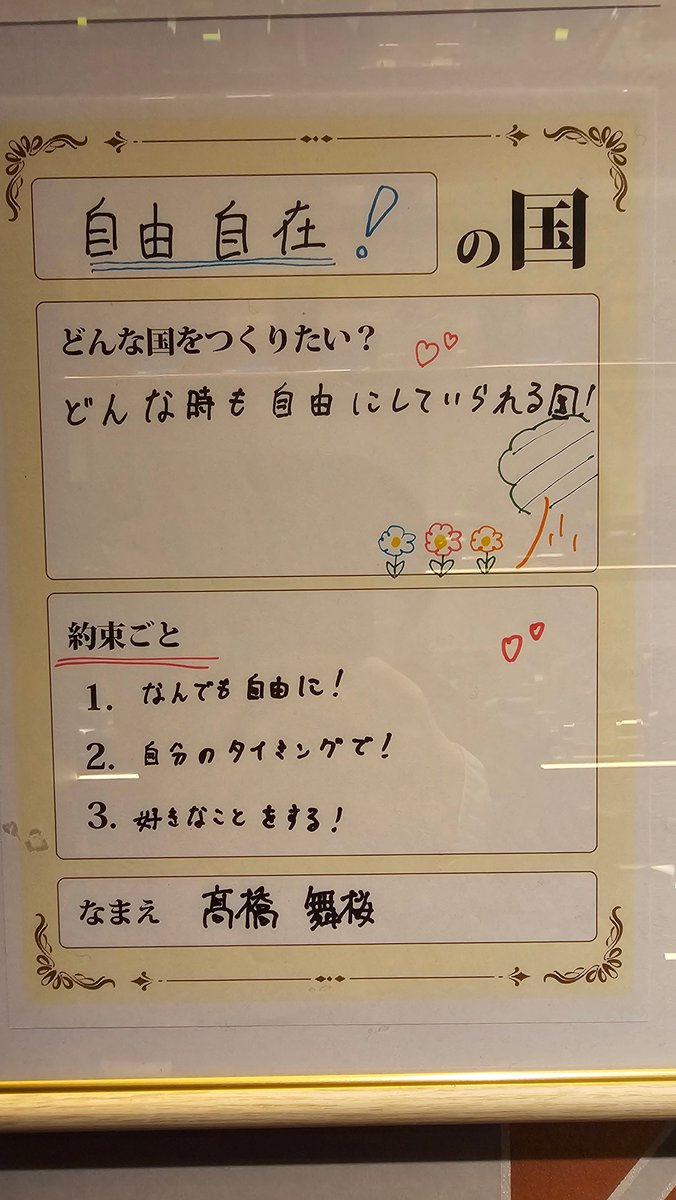 自由自在!
の国
どんな国をつくりたい?
どんな時も自由にしていられる国!
約束ごと
1. なんでも自由に!
2. 自分のタイミングで!
3. 好きなことをする!
なまえ 髙橋 舞桜